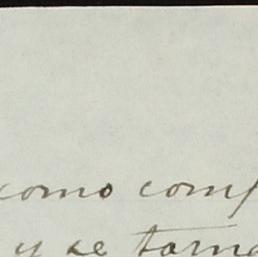 como comp
y se torna